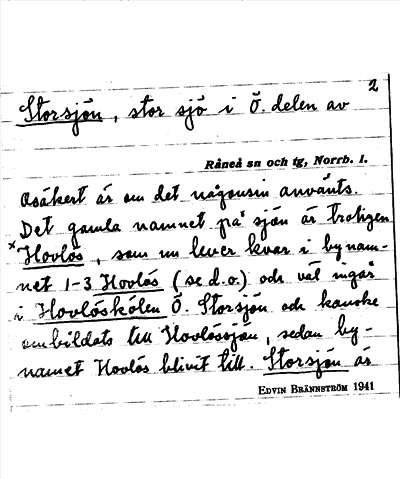 2
Storsjön, stor sjö i Ö. delen av
Råneå sn och tg, Norrb. l.
Osäkert är om det någonsin använts.
Det gamla namnet på sjön är troligen
*Hovlös, som nu lever kvar i bynam-
net 1-3 Hovlös (se d.o.) och väl ingår
i Hovlöskölen Ö. Storsjön och kanske
ombildats till Hovlössjön, sedan by-
namnet Hovlös blivit till. Storsjön är
EDVIN BRÄNNSTRÖM 1941